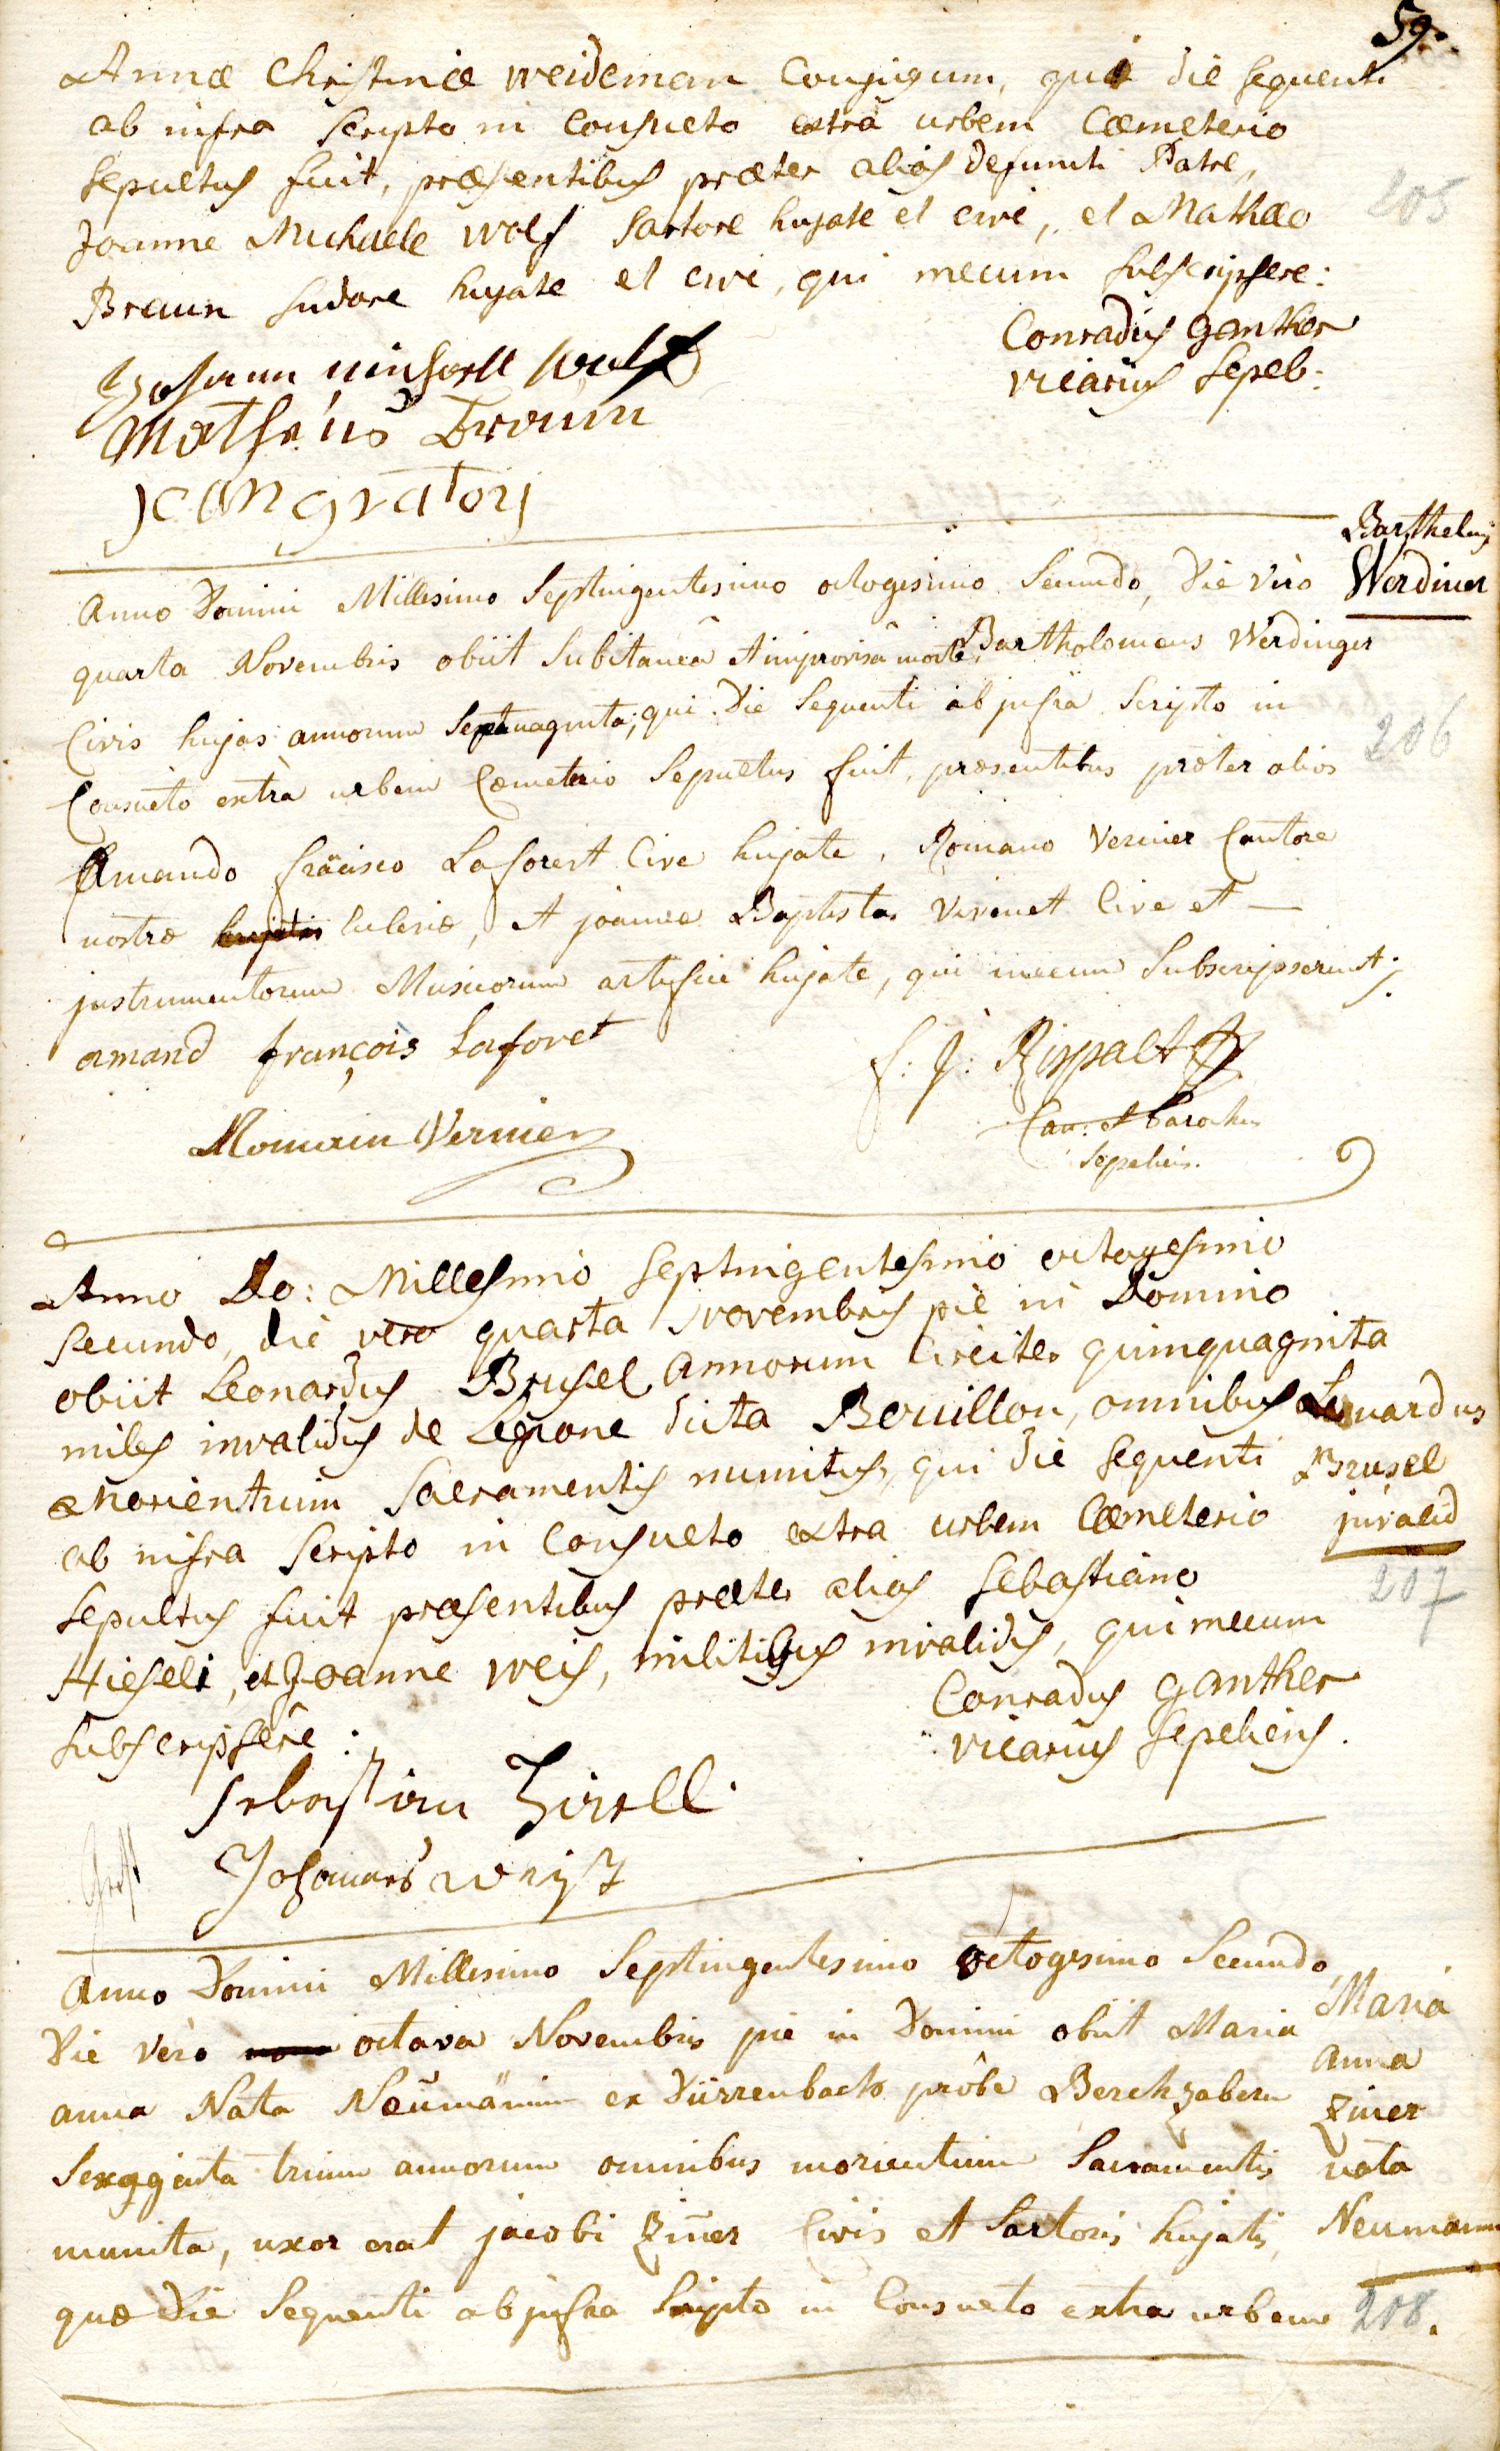 59.
Annæ Christinæ Weideman Conjugum, qui die sequenti
ab infra scripto in consueto extra urbem Cœmeterio
sepultus fuit, præsentibus præter alios defuncti Patre,
Joanne Michaele Wolf sartore hujate et cive, et Mathæo
Braun sudore hujate et cive, qui mecum subscripsere:
205
Conradus Ganther
vicarius sepeb:
Johann Michaell Wolf
Matheus Braun
Anno Domini Millesimo Septingentesimo octogesimo Secundo, Die Vèro
Barthelmy
Werdiner
quarta Novembris obiit Subitaneâ et improvisâ morte, Bartholomeus Werdinger
Civis hujas annorum Septuaginta, qui Die Sequenti ab jnfrà Scripto in
206
Consueto extrà urbem Cœmeterio Sepultus fuit, præsentibus præter alios
Amando fräcisco Laforest Cive hujate, Romano Vernier Cantore
nostræ hujatis Eclesiæ, et joanne Baptista Virmet Cive et —
jnstrumentorum Musicorum artifice hujate, qui mecum Subscripserunt;
amand françois Laforet
f: J: Rispalt
Can: et Parochus
Sepeliens.
Romain Vernier
Anno Do: Millesimo septingentesimo octogesimo
secundo, die vero quarta Novembris piè in Domino
obiit Leonardus Brusel annorum circiter quinquaginta
miles invalidus de Legione dicta Bouillon, omnibus
morientium sacramentis munitus, qui die sequenti
ab infra scripto in Consueto extra urbem Cœmeterio
sepultus fuit præsentibus præter alios Sebastiano
Hieseli, et Joanne Weis, militibus invalidis, qui mecum
subscripsere:
Leonardus
Brusel
jnvalid
207
Conradus Ganther
vicarius sepeliens.
Sebastian
Johannes
Anno Domini Millesimo Septingentesimo octogesimo Secundo,
Die Vèro octava Novembris pie in Domini obiit Maria
anna Nata Neümännin ex Dürrenbach propè Berchzabern
Sexagginta trium annorum omnibus morientium Sacramentis
munita, uxor erat jacobi Ziñer Civis et Sartoris hujatis,
quæ Die Sequenti ab jnfra Scripto in Consueto extra urbem
Maria
Anna
Ziner
nata
Neumann
208.